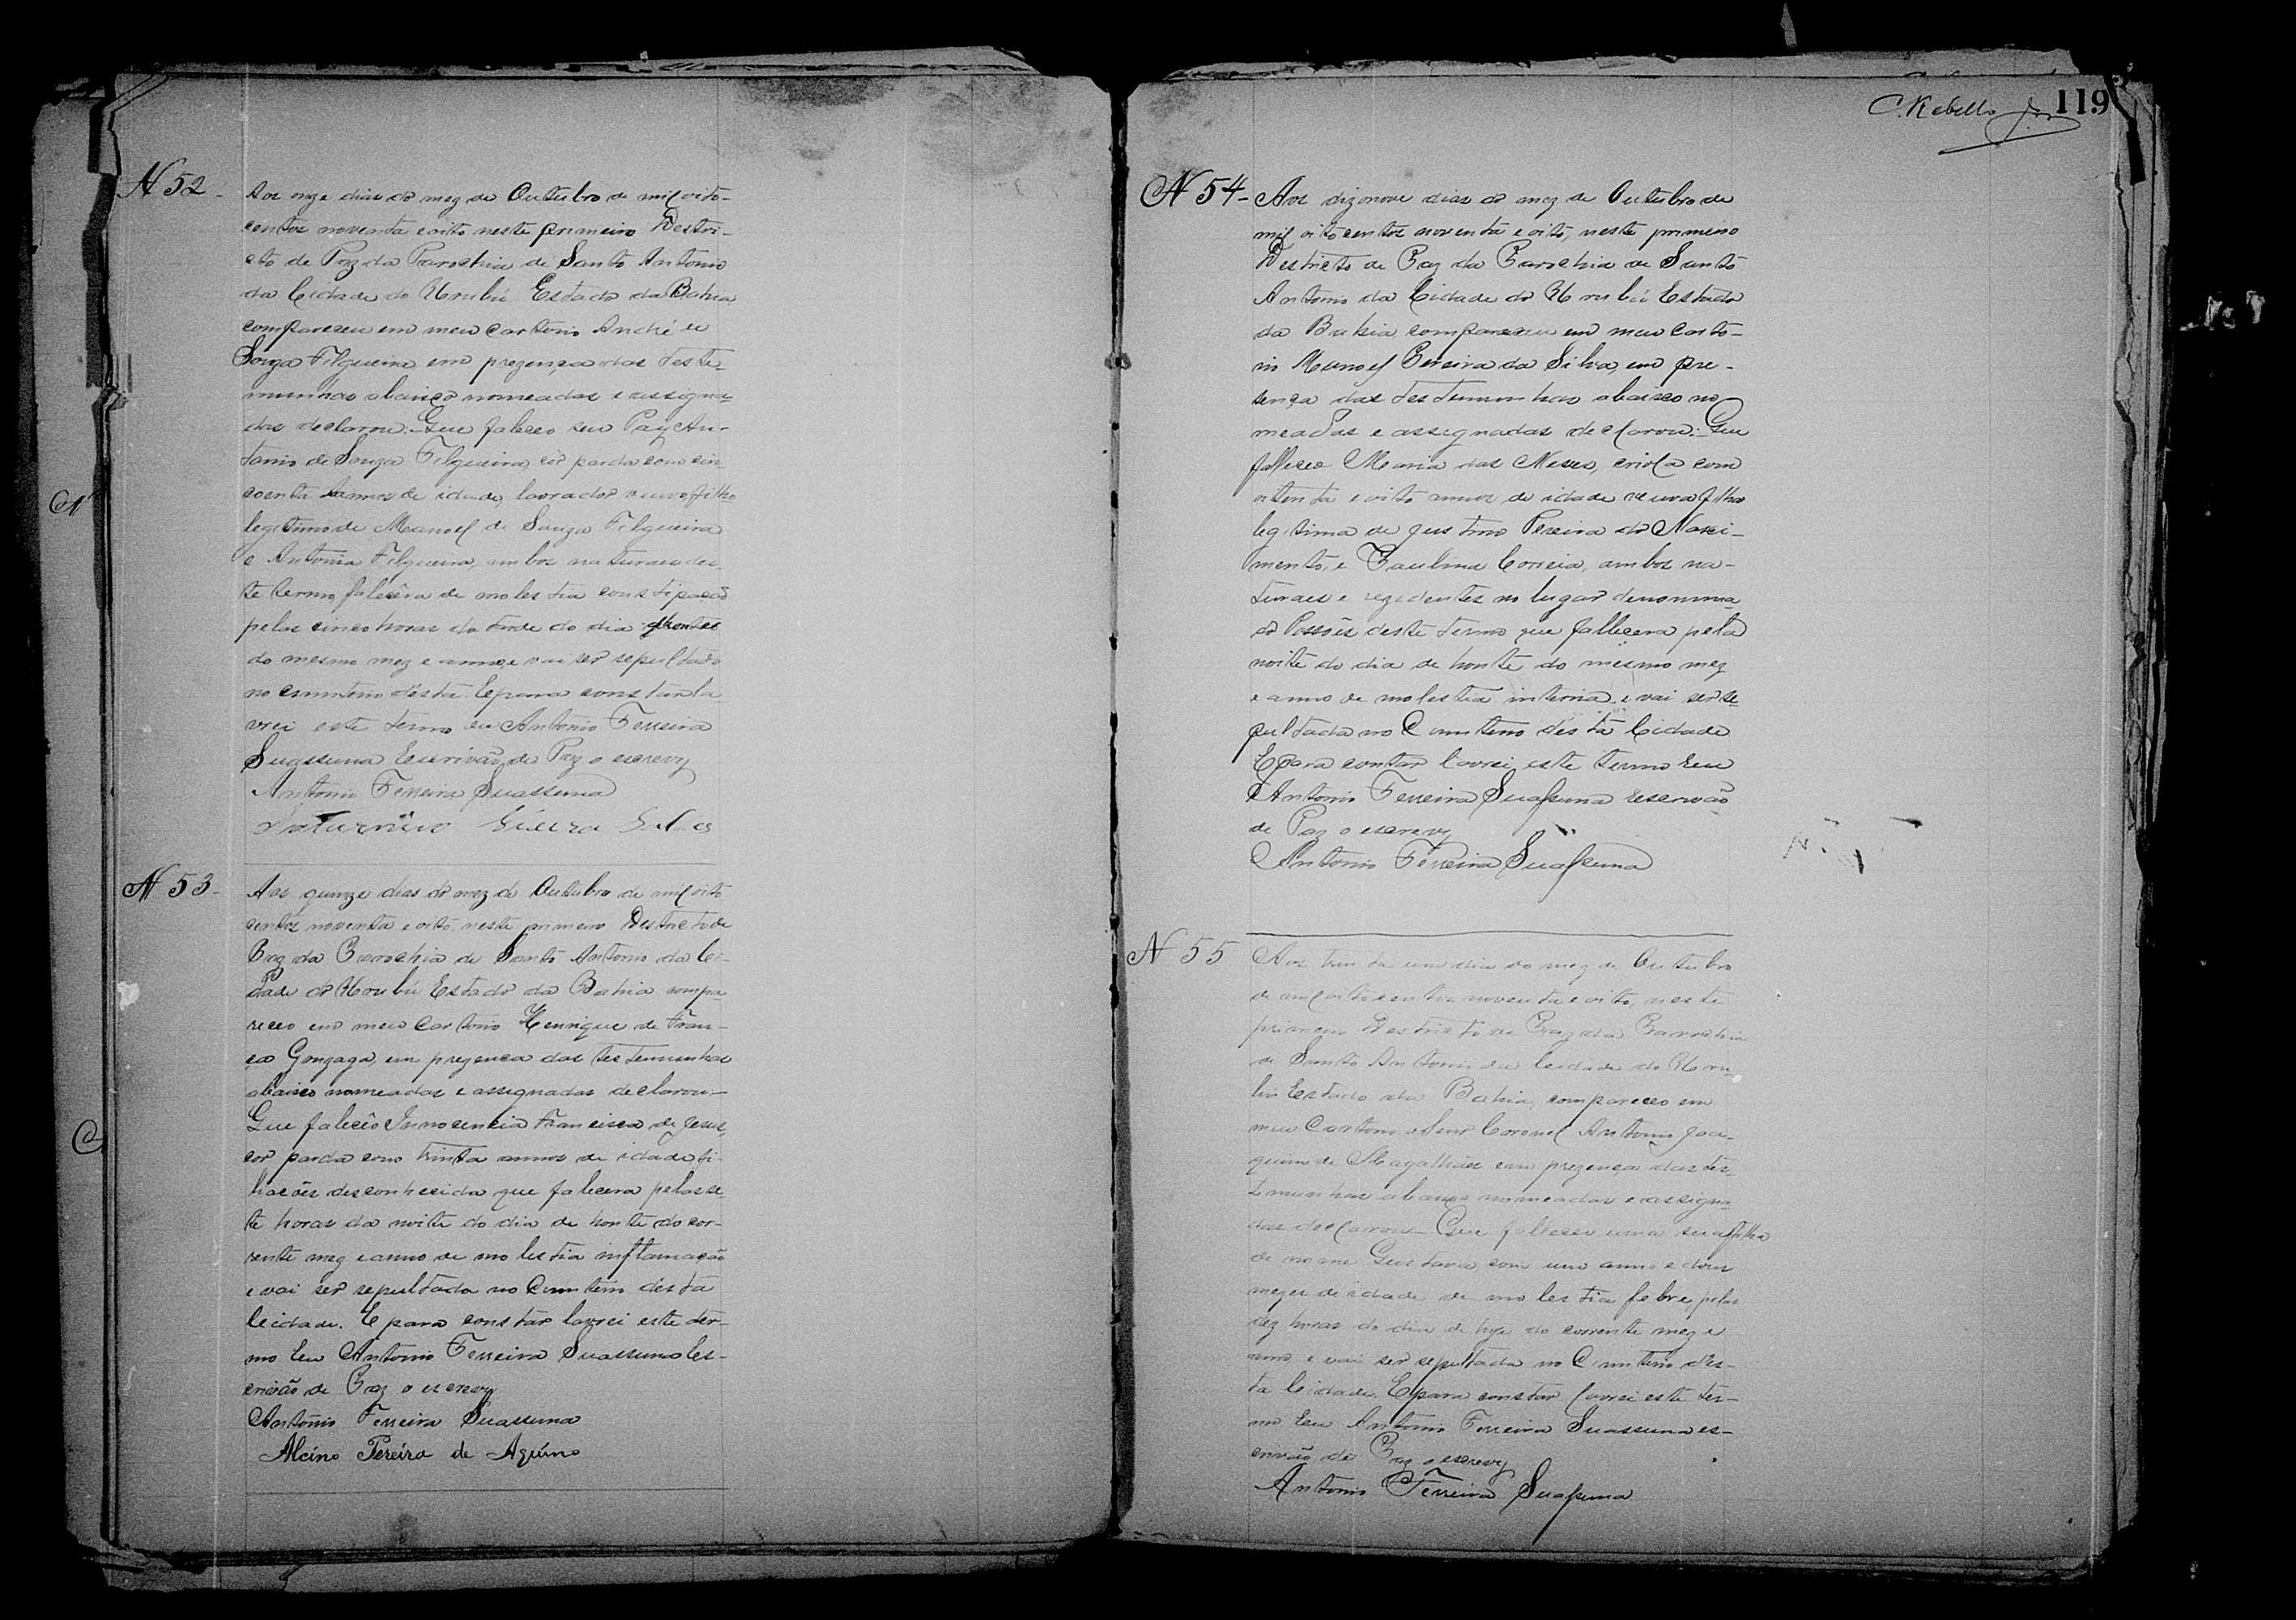 N 52 -
Aos onze dias do mez de Outubro de mil oito-
centos noventa e oito neste primeiro Destri-
cto de Paz da Parochia de Santo Antonio
da Cidade do Urubú Estado da Bahia
compareceu em meu cartorio André de
Souza Filgueira em prezença das teste-
munhas abaixo nomeadas e assigna-
das declarou: Que faleceo seu Pay An-
tonio de Souza Filgueira, côr parda com cin-
coenta annos de idade, lavrador viuvo filho
legitimo de Manoel de Souza Filgueira
e Antonia Filgueira, ambos naturaes des-
te termo, falecêra de molestia constipação
pelas cinco horas da tarde do dia
do mesmo mez e anno, e vai ser sepultado
no cemiterio désta. E para constar la-
vrei este termo eu Antonio Ferreira
Suassuna Escrivão de Paz o escrevy
Antonio Ferreira Suassuna
Saturnino
N 53 -
Aos quinze dias do mez de Outubro de mil oito
centos noventa e oito neste primeiro Destricto de
Paz da Parochia de Santo Antonio da Ci-
dade do Urubú Estado da Bahia compa
receo em meu Cartorio Henrique de Fran-
ça Gonzaga, em prezenca das testemunhas
abaixo nomeadas e assignadas declarou:-
Que falecêo Innocencia Francisca de Jesus,
côr parda com trinta annos de idade fi-
liacões desconhecida que falecera pelas se-
te horas da noite do dia de honte do cor-
rente mez e anno de molestia inflamação
e vai ser sepultada no Cemiterio désta
Cidade. E para constar lavrei este ter-
mo Eu Antonio Ferreira Suassuna Es-
crivão de Paz o escrevy
Antonio Ferreira Suassuna
Alcino Pereira de Aquino
C. Rebello Jor 119
N 54 - Aos dizonove dias do mez de Outubro de
mil oitocentos noventa e oito, neste primeiro
Destricto de Paz da Parochia de Santo
Antonio da Cidade do Urubú Estado
da Bahia compareceu em meu carto-
rio Manoel Pereira da Silva, em pre-
sença das testemunhas abaixo no
meadas e assegnadas declarou:- Que
falleceo Maria das Neves, criola com
oitenta e oito annos de idade viuva filha
legitima de Justino Pereira do Nasci-
mento, e Paulina Correia, ambos na-
turaes e rezidentes no lugar denomina-
do Possões deste termo que fallecera pela
noite do dia de honte do mesmo mez
e anno de molestia interna, e vai ser se-
pultada no Cemiterio désta Cidade
E para contar lavrei este termo Eu
Antonio Ferreira Suassuna Escrevão
de Paz o escrevy
Antonio Ferreira Suassuna
N 55 Aos trinta um dias do mez de Outubro
de mil oitocentos noventa e oito, neste
primeiro Destricto de Paz da Parochia
de Santo Antonio da Cidade do Uru-
bú Estado da Bahia, compareceo em
meu Cartorio o Senr Coronel Antonio Joa-
quim de Magalhães em prezença das tes-
temunhas abaixo nomeadas e assigna-
das declarou- Que falleceo uma sua filha
de nome Gustava com um anno e dous
mezes de idade de molestia febre, pelas
dez horas do dia de hoje do corrente mez e
anno e vai ser sepultada no Cemiterio dés-
ta Cidade. E para constar lavrei este ter-
mo Eu Antonio Ferreira Suassuna es-
crivão de Paz o escrevy
Antonio Ferreira Suassuna